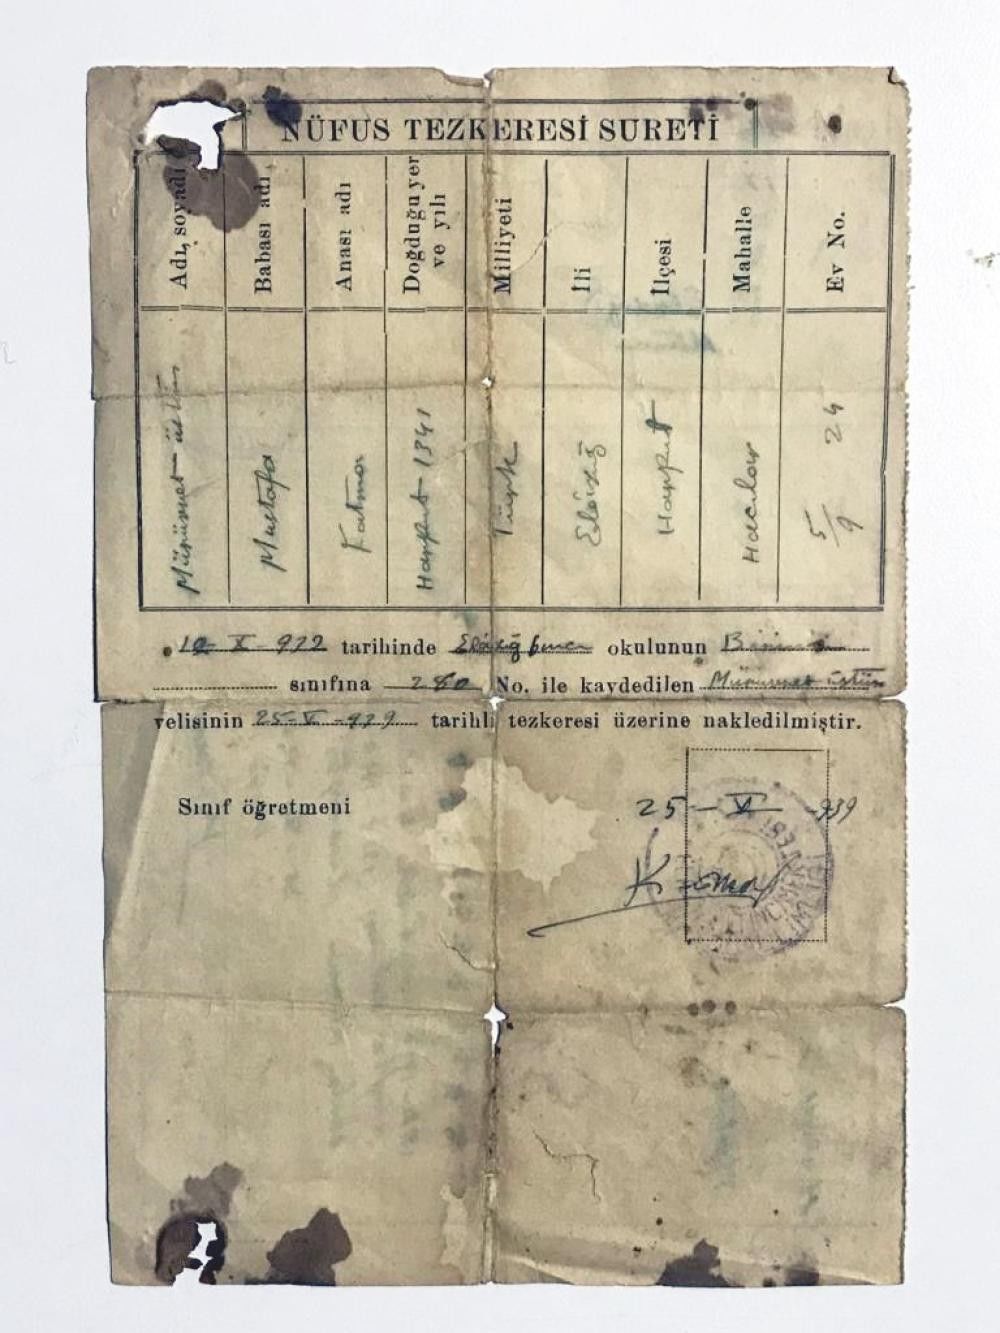 NÜFUS TEZKERESİ SURETİ
Adı, soyadı
Babası adı
Anası adı
Doğduğu yer ve yılı
Milliyeti
İli
İlçesi
Mahalle
Ev No.
Mustafa
Fatma
Harput 1341
Türk
Elâzığ
Harput
Hacılar
5/9 24
tarihinde Elâzığ okulunun Birinci
sınıfına No. ile kaydedilen üstün
velisinin tarihli tezkeresi üzerine nakledilmiştir.
Sınıf öğretmeni
25-V-939